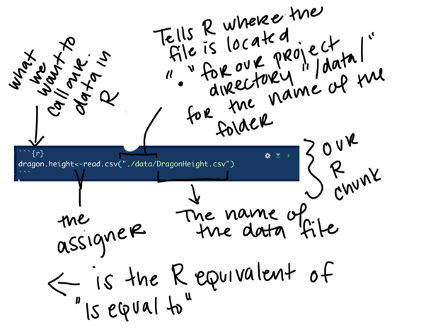 what
we
want to
call our
data in
R
Tells R where the
file is located
"." for our project
directory "/data/"
for the name of the
folder
```{r}
dragon.height<-read.csv("./data/DragonHeight.csv")
```
our
R
chunk
the
assigner
The name of
the data file
<- is the R equivalent of
"is equal to"